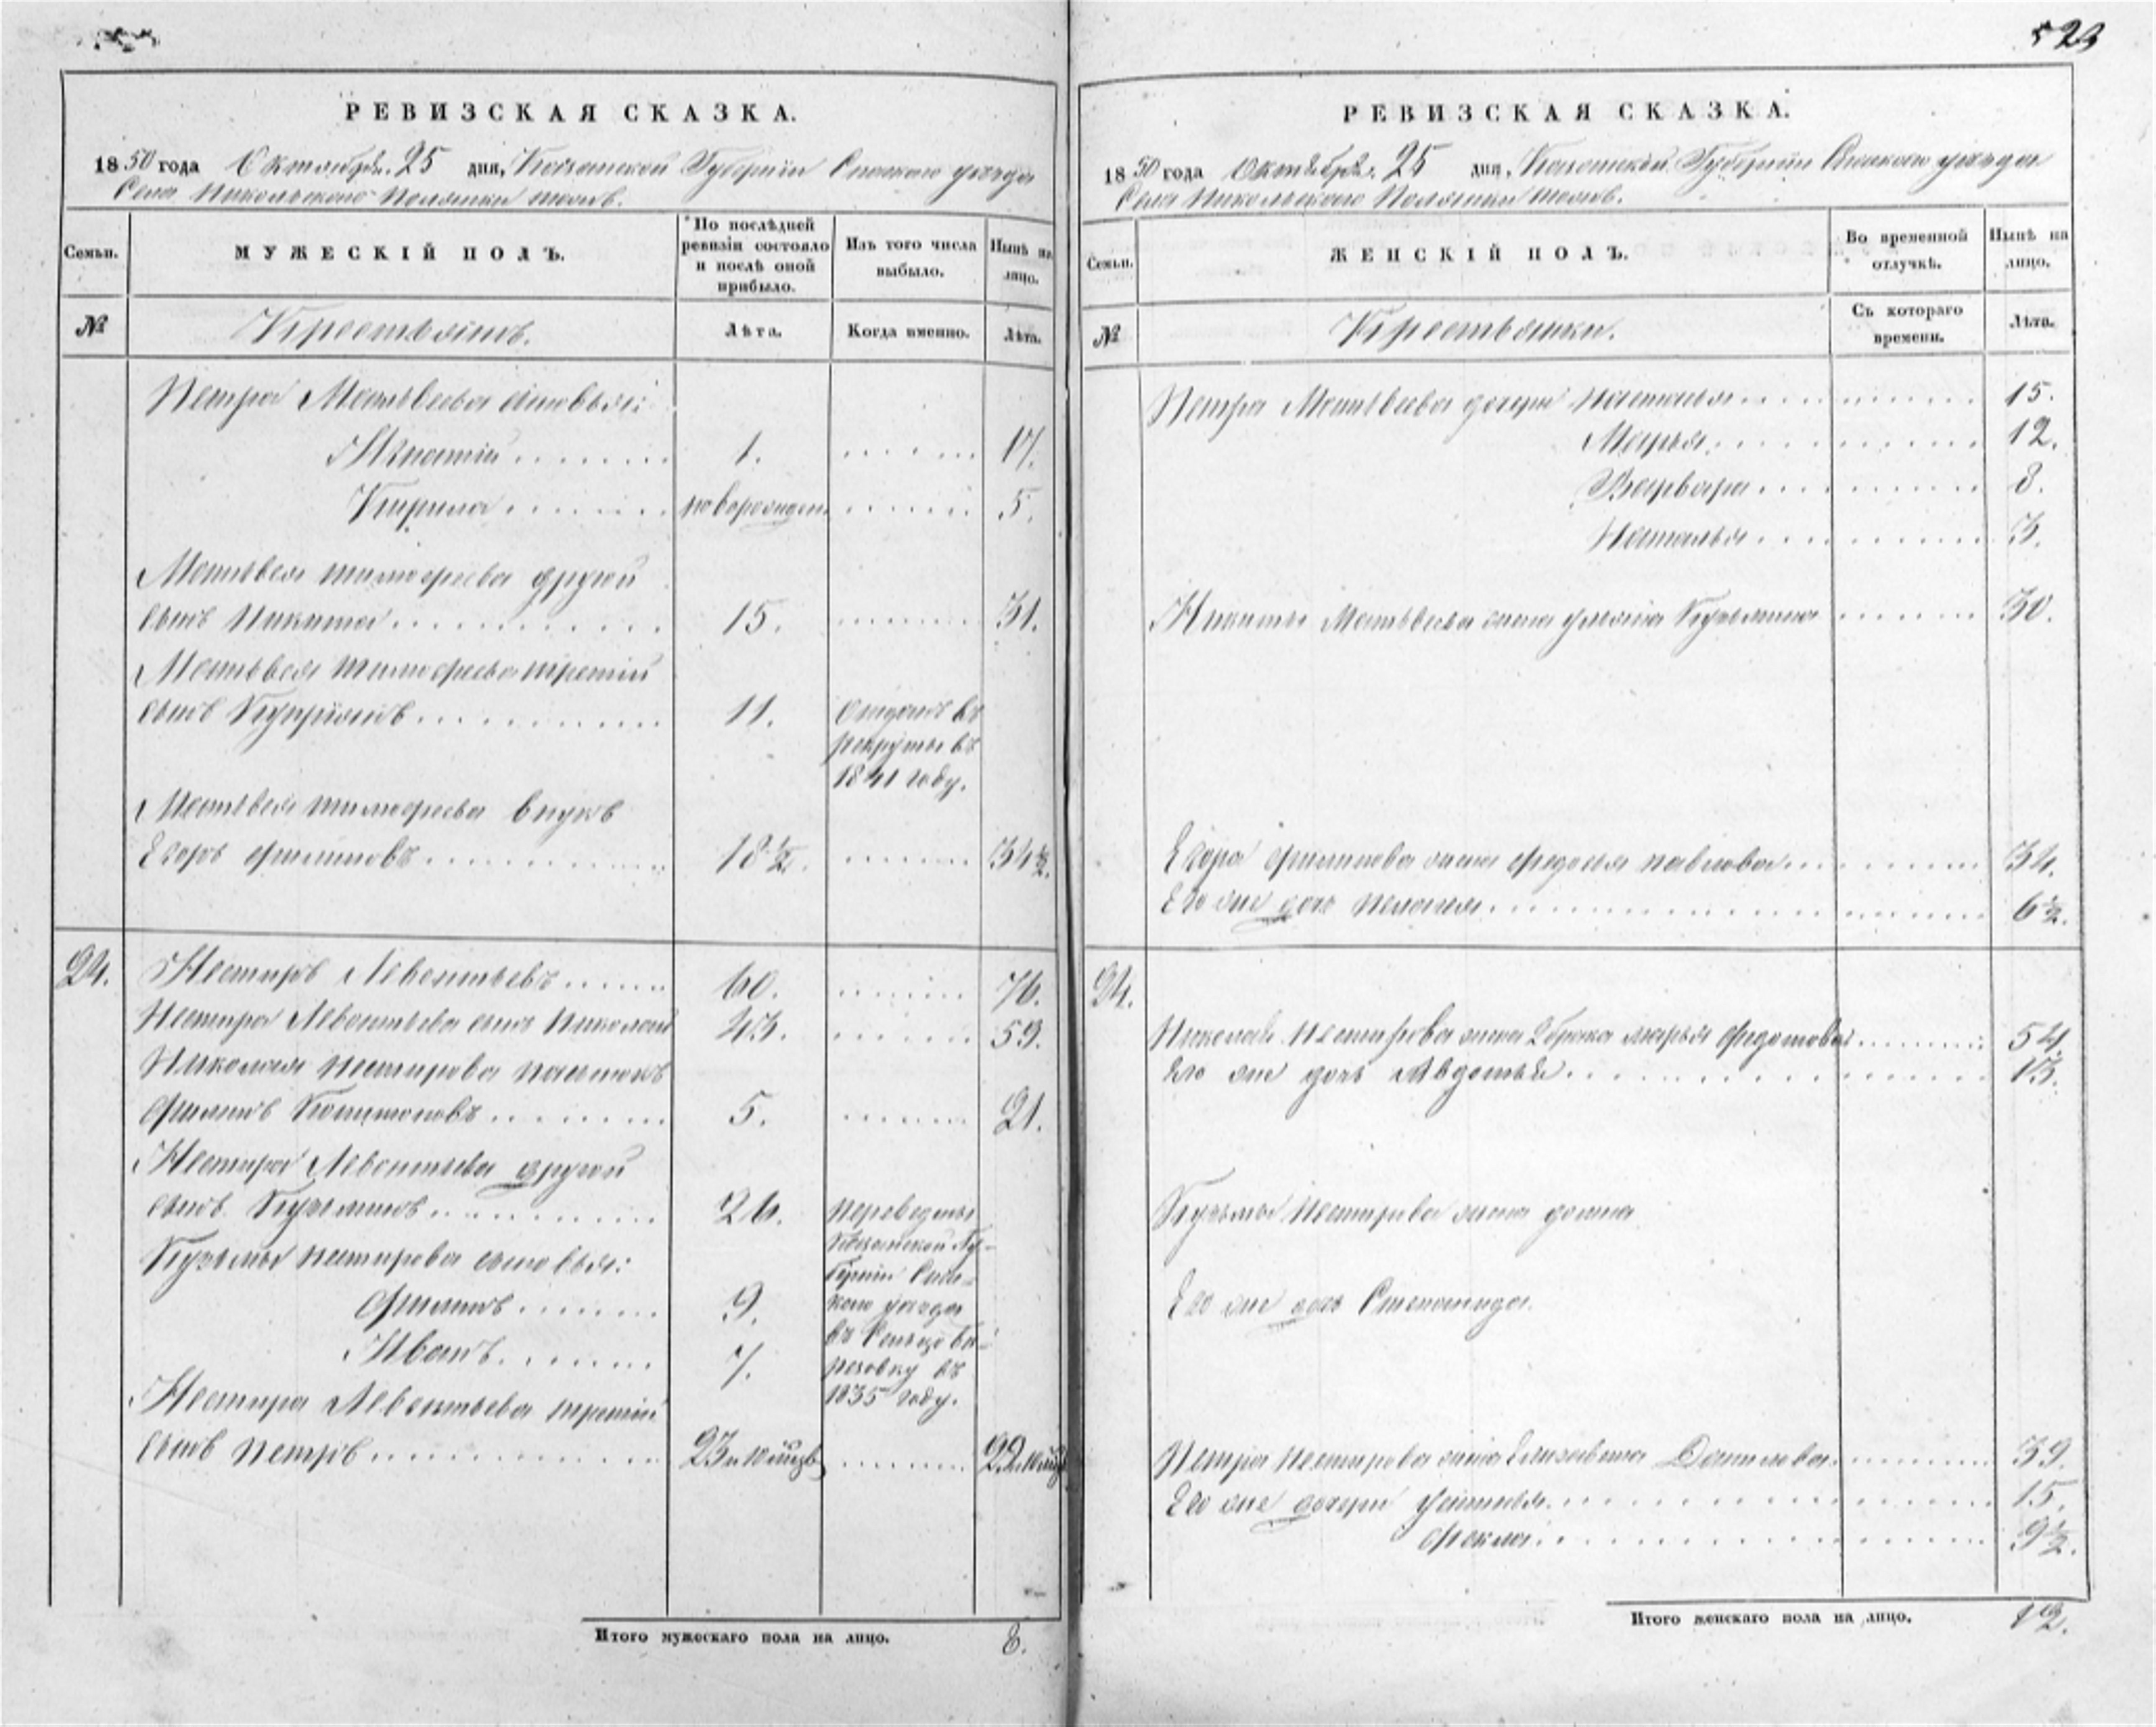 523
РЕВИЗСКАЯ СКАЗКА.
1850 года Октября 25 дня, Казанской Губернiи Спаскаго уезда
Села Никольскаго Полянки тожъ.
Семьи.
МУЖЕСКIЙ ПОЛЪ.
По послѣдней ревизiи состояло и послѣ оной прибыло.
Изъ того числа выбыло.
Нынѣ на лицо.
№
Крестьянъ.
Лѣта.
Когда именно.
Лѣта.
Петра Матвеева сыновья:
Игнатiй 1. 17.
Кирила новорожден. 5.
Матвея тимофеева другой
сынъ Никита 15. 31.
Матвея тимофеева третiй
сынъ Купрiянъ 11. отданъ въ
рекруты въ
1841 году.
Матвея тимофеева внукъ
Егоръ филиповъ 18½. 34½.
24. Нестиръ Левонтьевъ 60. 76.
Нестира Левонтьева сынъ Николай 43. 59.
Николая нестирова пасынокъ
филипъ 5. 21.
Нестира Левонтьева другой
сынъ 26. переведены
Казанской Гу-
бернiи Спас-
каго уезда
въ Сельцо Бе-
резовку въ
1835 году.
Кузьмы нестирова сыновья:
филипъ 9.
Иванъ 7.
Нестира Левонтьева третiй
сынъ петръ 23
Итого мужескаго пола на лицо. 8.
РЕВИЗСКАЯ СКАЗКА.
1850 года Октября 25 дня, Казанской Губернiи Спаскаго уезда
Села Никольскаго Полянки тожъ.
Семьи.
ЖЕНСКIЙ ПОЛЪ.
Во временной отлучкѣ.
Нынѣ на лицо.
№
Крестьянки.
Съ котораго времени.
Лѣта.
Петра Матвеева дочери настасья 15.
Марья 12.
Варвара 8.
Наталья 3.
Никиты Матвеева жена ульяна Кузьмина 30.
Егора филипова жена федосья павлова 34.
Его же дочь пелагея 6½.
24.
Николая нестирова жена 2 брака марья федотова 54.
Его же дочь Авдотья 13.
Кузьмы нестирова жена домна
Его же дочь Степанида.
Петра нестирова жена Елизавета Данилова 39.
Его же дочери устинья 15.
фекла 9½.
Итого женскаго пола на лицо. 12.